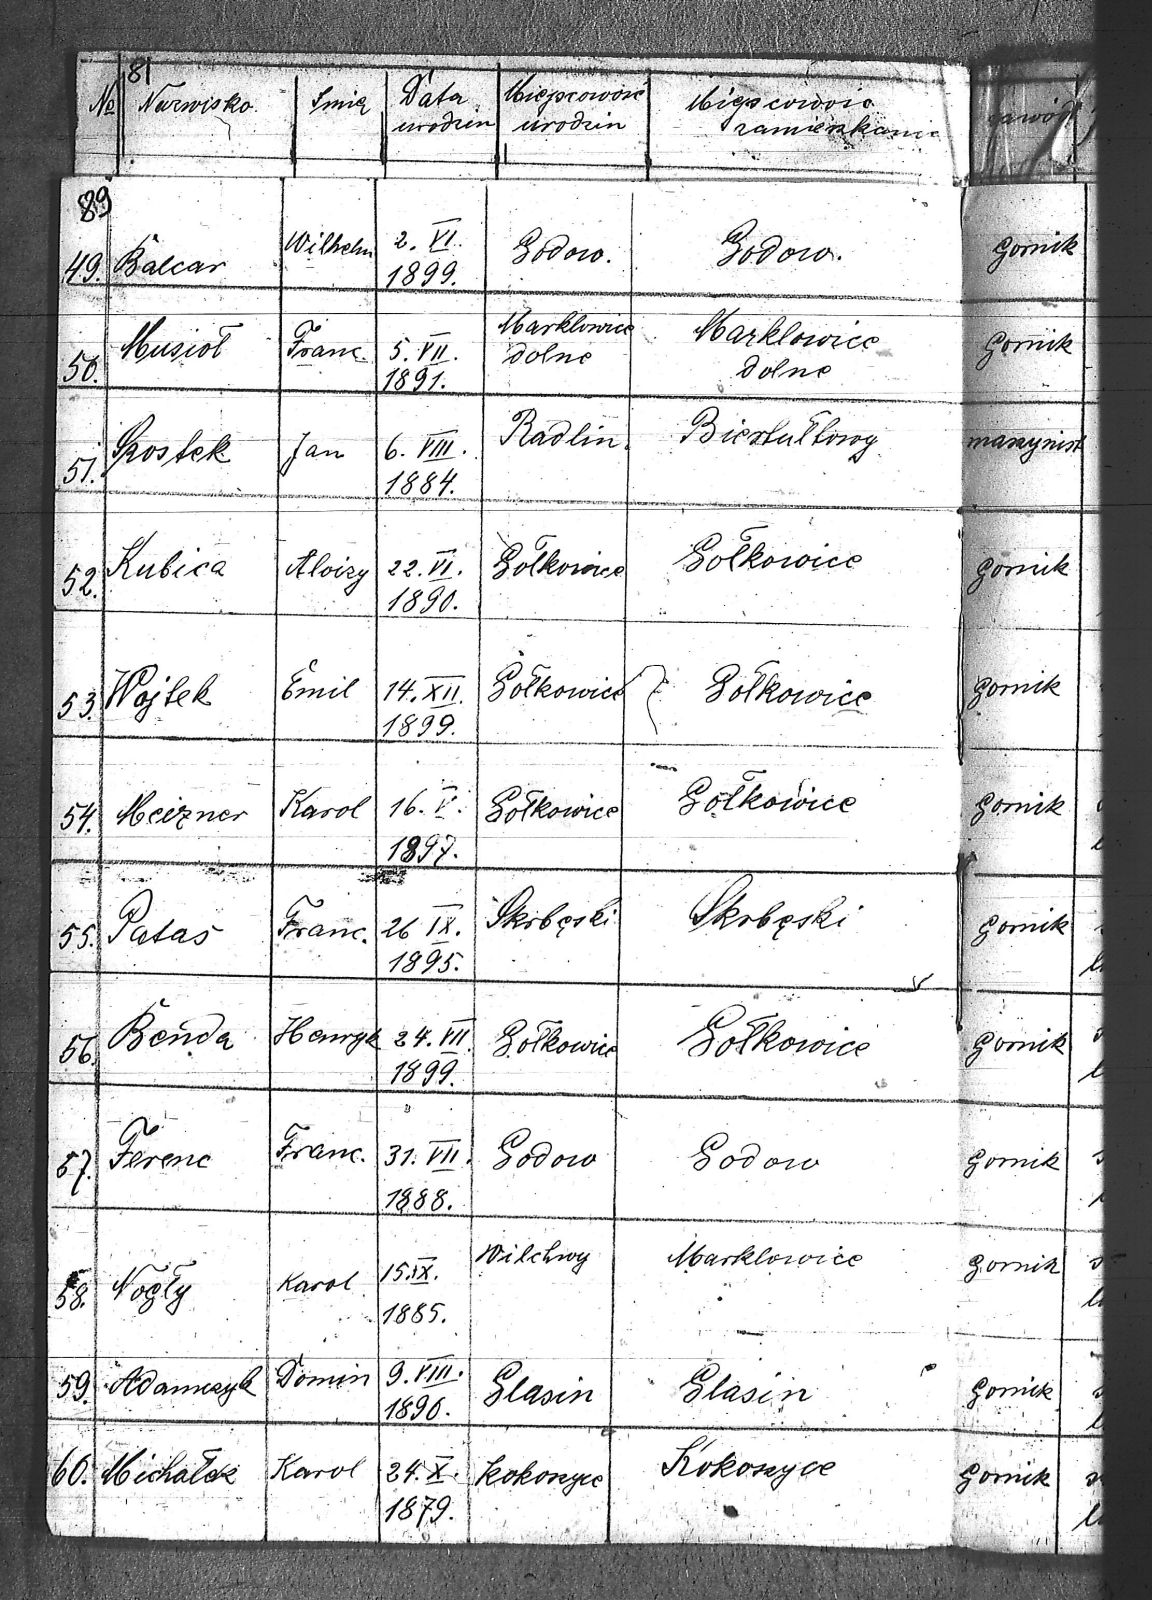 81
№ Nazwisko Imię Data Miejscowość Miejscowość zawód
urodzin urodzin zamieszkania
89
49. Balcar Wilhelm 2. VI. Godow. Godow. Gornik
1899.
50. Musioł Franc. 5. VII. Marklowice Marklowice Gornik
1891. dolne dolne
51. Szostek Jan 6. VIII. Radlin. Biertułtowy maszynist
1884.
52. Kubica Aloizy 22. VI. Gołkowice Gołkowice Gornik
1890.
53. Wojtek Emil 14. XII. Gołkowice Gołkowice Gornik
1899.
54. Meizner Karol 16. V. Gołkowice Gołkowice Gornik
1897.
55. Patas Franc. 26 IX. Skrbęski Skrbęski Gornik
1895.
56. Benda Henryk 24. VII. Gołkowice Gołkowice Gornik
1899.
57. Ferenc Franc. 31. VII. Godow Godow Gornik
1888.
58. Nogły Karol 15. IX. Wilchwy Marklowice Gornik
1885.
59. Adamczyk Domin 9. VIII. Glasin Glasin Gornik
1890.
60. Michałek Karol 24. X. Kokoszyce Kokoszyce Gornik
1879.